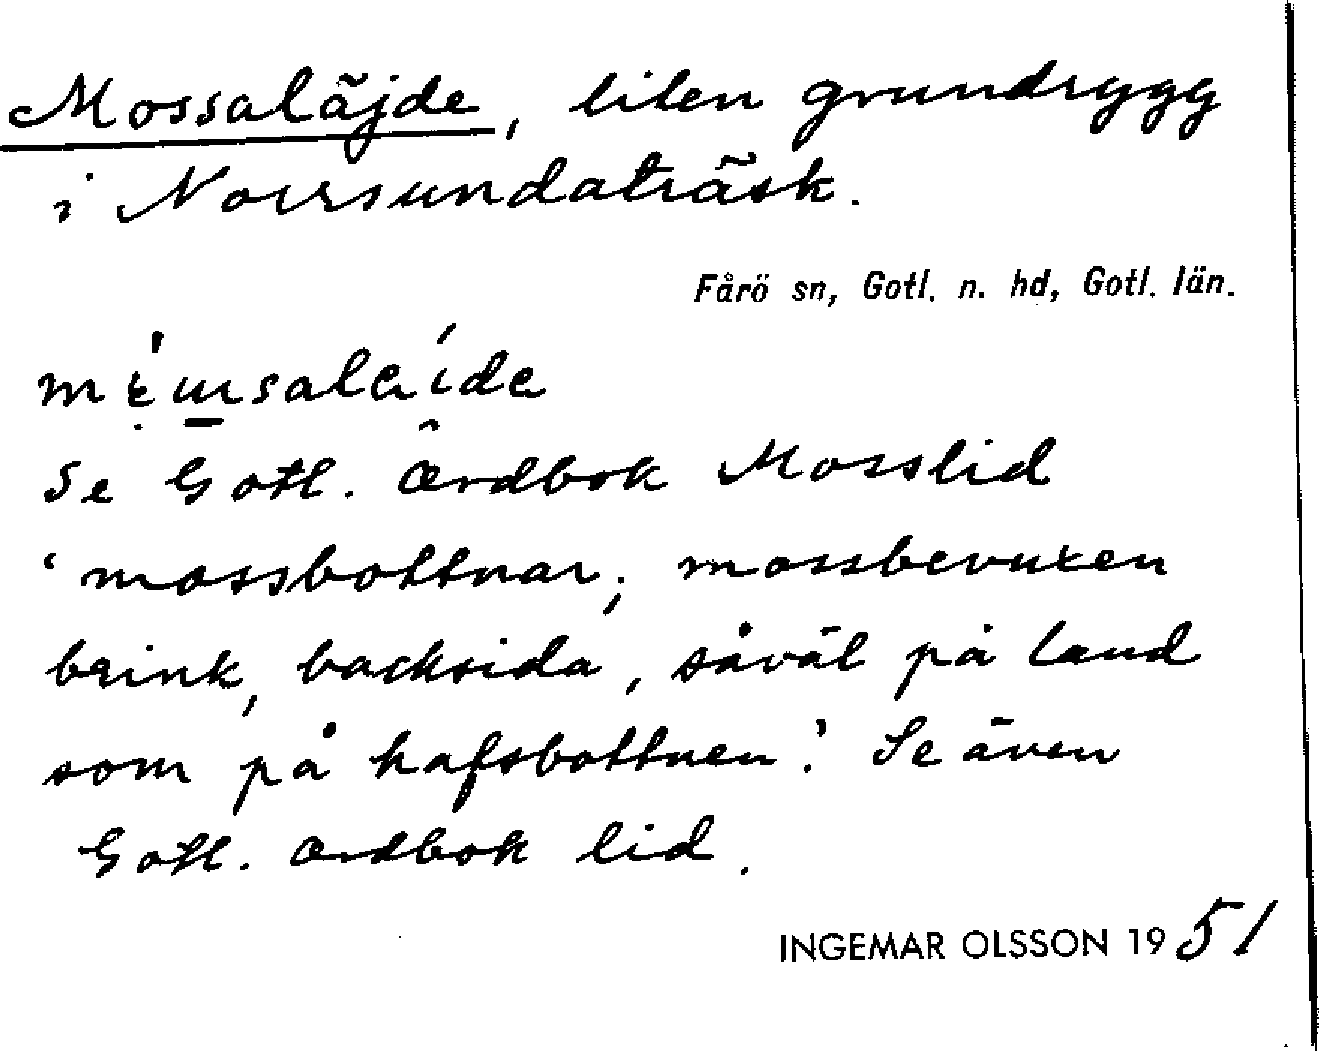 Mossaläjde, liten grundrygg
i Norrsundaträsk.
Fårö sn, Gotl. n. hd, Gotl. län.
Se Gotl. Ordbok Mosslid
‘mossbottnar; mossbevuxen
brink, backsida, såväl på land
som på hafsbottnen’. Se även
Gotl. Ordbok lid.
INGEMAR OLSSON 1951